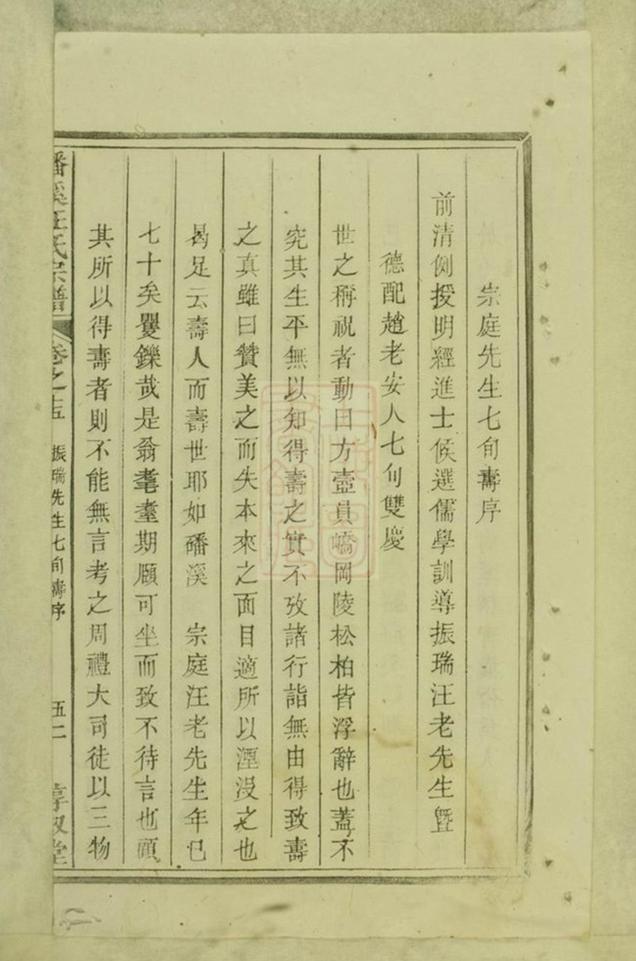 宗庭先生七旬壽序
前清例授明經進士候選儒學訓導振瑞汪老先生暨
德配趙老安人七旬雙慶
世之稱祝者動曰方壺員嶠岡陵松柏皆浮辭也蓋不
究其生平無以知得壽之實不攷諸行詣無由得致壽
之真雖曰贊美之而失本來之面目適所以湮没之也
曷足云壽人而壽世耶如磻溪 宗庭汪老先生年已
七十矣矍鑠哉是翁耄耋期頤可坐而致不待言也顧
其所以得壽者則不能無言考之周禮大司徒以三物
磻溪汪氏宗譜 卷之十五 振瑞先生七旬壽序 五二 惇敘堂